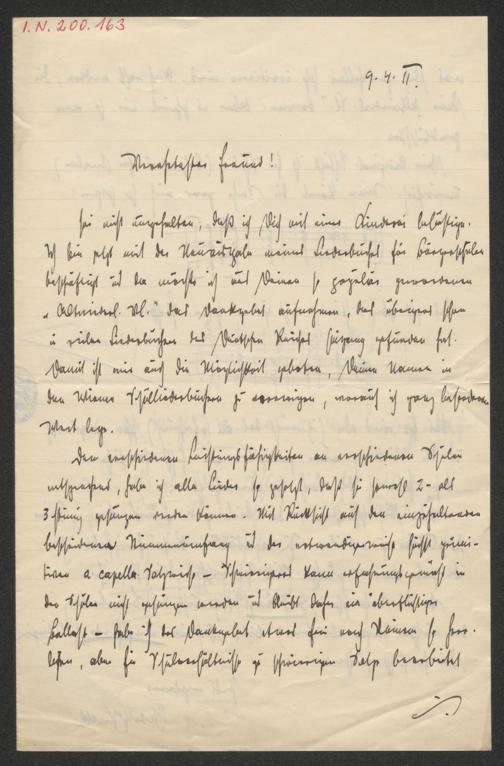 I. N. 200.163
9.4.11.
Verehrtester Freund!
Sei nicht ungehalten, daß ich Dich mit einer Kinderei belästige.
Ich bin jetzt mit der Neuausgabe meines Liederbuches für Bürgerschulen
beschäftigt und da möchte ich aus Deinen so populär gewordenen
"Altniederl. Vl." das Dankgebet aufnehmen, das übrigens schon
in vielen Liederbüchern des Deutschen Reiches Eingang gefunden hat.
Damit ist mir auch die Möglichkeit geboten, Deinen Namen in
den Wiener Schulliederbüchern zu verewigen, worauf ich ganz besonderen
Wert lege.
Den verschiedenen Leistungsfähigkeiten an verschiedenen Schulen
entsprechend, habe ich alle Lieder so gesetzt, daß sie sowohl 2- als
3-stimmig gesungen werden können. Mit Rücksicht auf den einzuhaltenden
bescheidenen Stimmenumfang und den notwendigerweise höchst primi-
tiven a capella Satz
kann erfahrungsgemäß in
den Schulen nicht gesungen werden und bleibt daher ein überflüssiger
Ballast - habe ich das Dankgebet etwas frei nach Deinem so herr-
lichen, aber für Schulverhältnisse zu schwierigen Satze bearbeitet